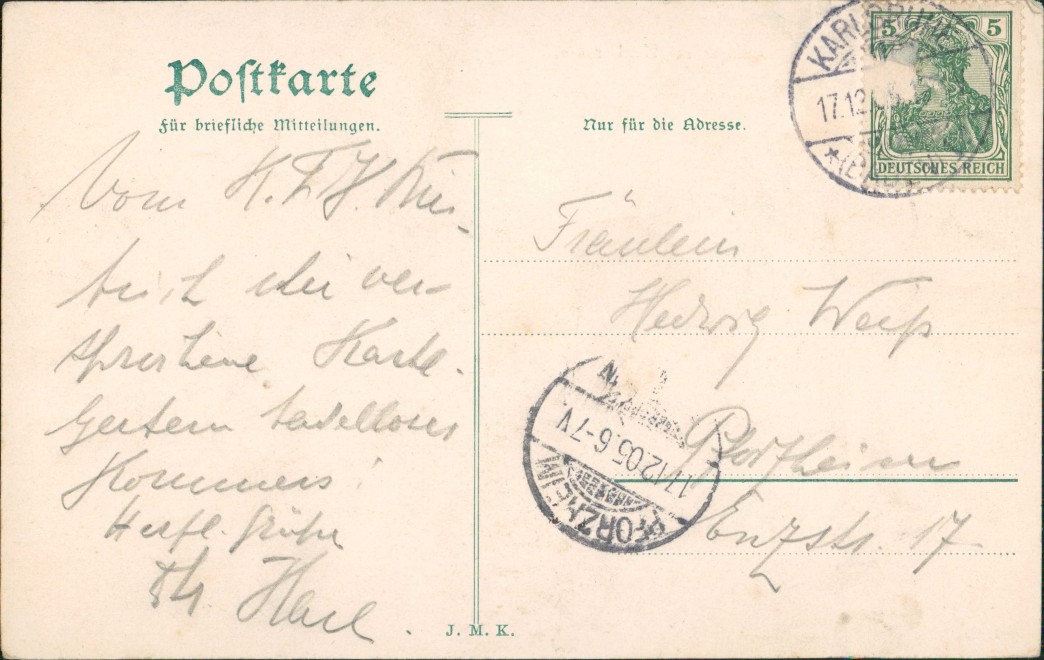 Postkarte
Für briefliche Mitteilungen.
Nur für die Adresse.
KARLSRUHE
17.12
*(BADEN)
5 5
DEUTSCHES REICH
Vom K.
die ver-
sprochene Karte.
Gestern tadelloser
Kommers!
Herzl. Grüße
Karl.
Fräulein
Hedwig Weiß
Pforzheim
Enzstr. 17
PFORZHEIM
17.12.05.6-7V
J. M. K.